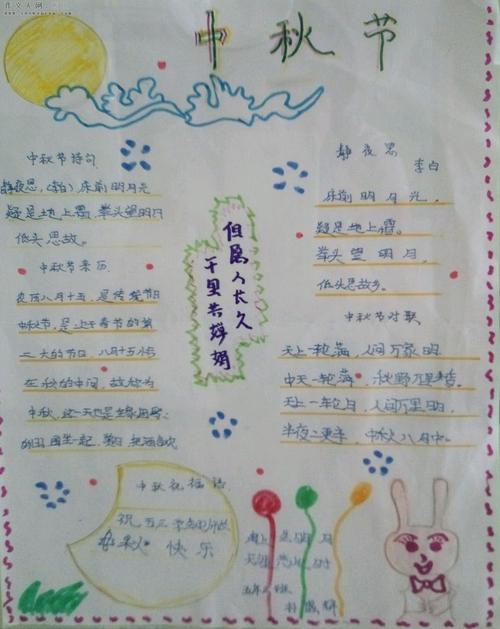 作文大网
中秋节
中秋节诗句
静夜思,(李白)床前明月光
疑是地上霜,举头望明月
低头思故。
中秋节来历
农历八月十五,是传统节日
中秋节,是上于春节的第
二大的节日,八月十五恰
在秋的中间,故称为
中秋,这一天也是
但愿人长久
千里共婵娟
静夜思
李白
床前明月光,
疑是地上霜。
举头望明月,
低头思故乡。
中秋节对联
天上一轮满,人间万家明
中天一轮满,秋野万里香。
天上一轮月,人间万里明,
半夜二更半,中秋八月中。
中秋祝福语
祝五三
中秋快乐
海上